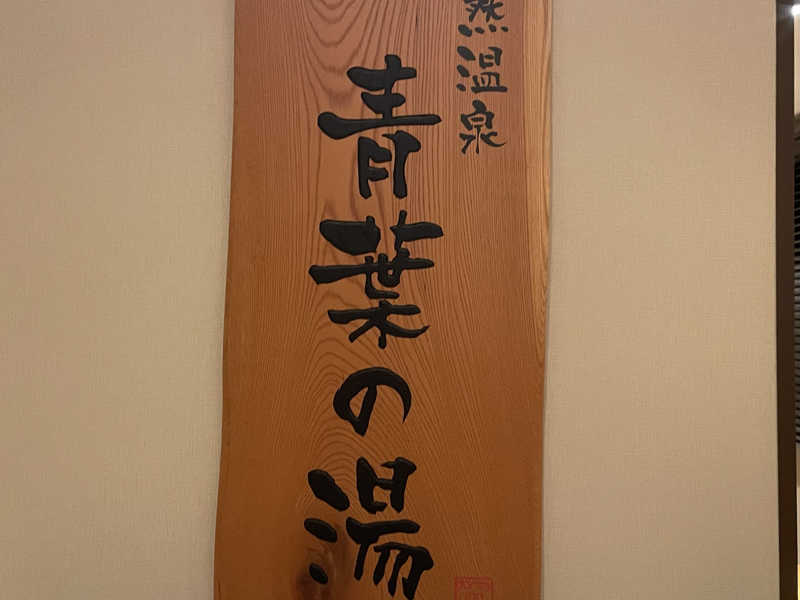 然温泉
青葉の湯